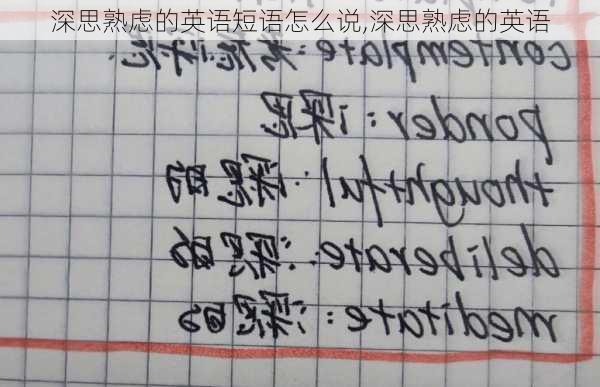 深思熟虑的英语短语怎么说,深思熟虑的英语
contemplate:
ponder: 深思
thoughtful: 深思的
deliberate: 深思的
meditate: 深思的